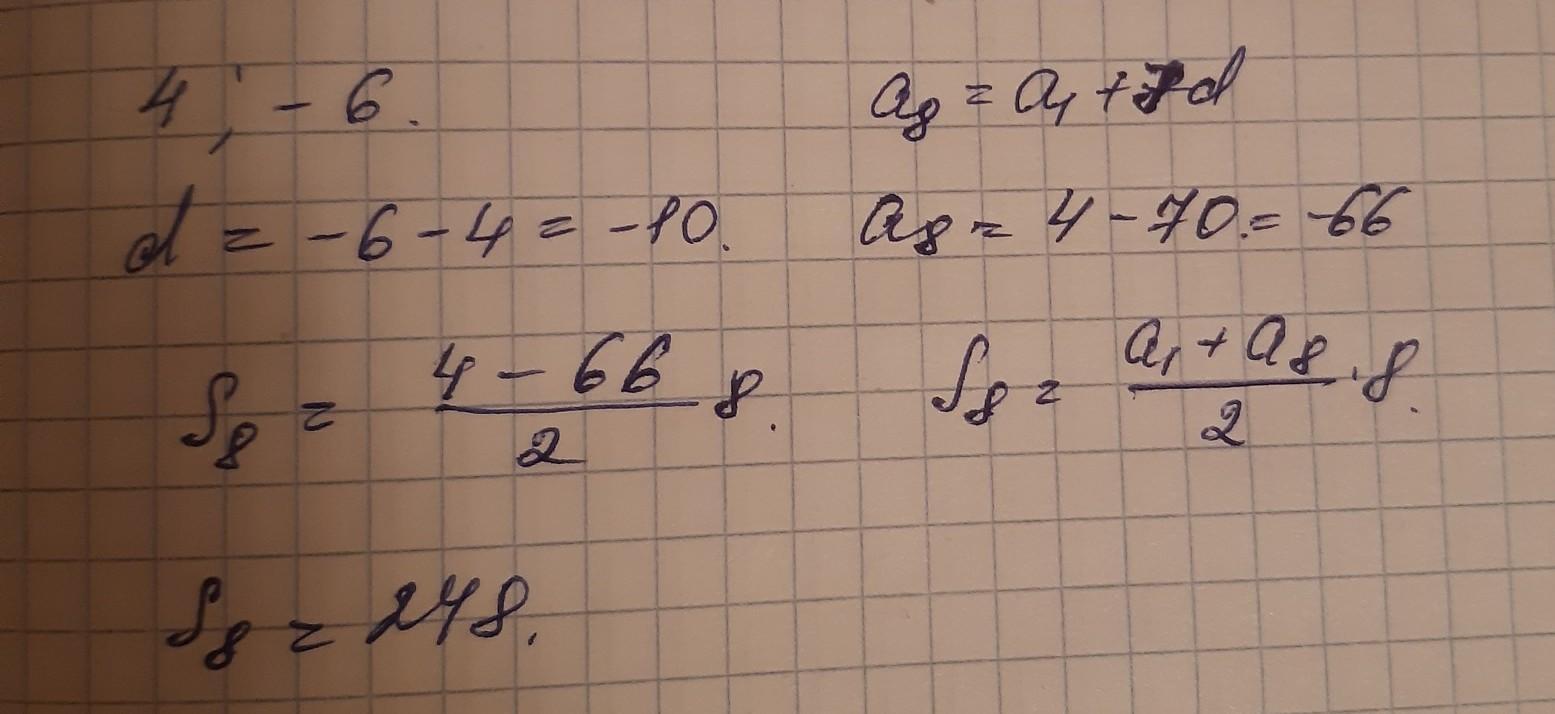 4 ; - 6.
a₈ = a₁ + 7d
d = -6 - 4 = -10.
a₈ = 4 - 70. = -66
S₈ = (4 - 66)/2 8.
S₈ = (a₁ + a₈)/2 · 8.
S₈ = 248.